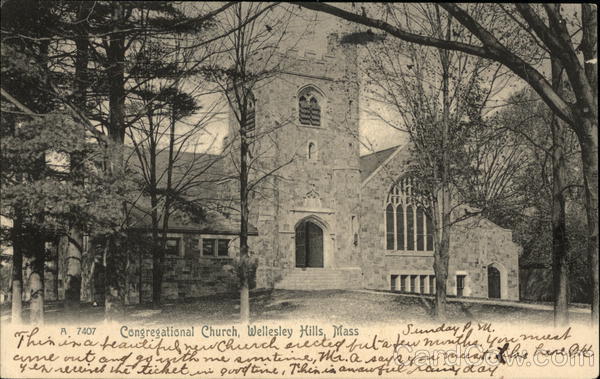 A 7407 Congregational Church, Wellesley Hills, Mass
Sunday P.M.
This is a beautiful new Church erected but a few months. You must
come out and go with me sometime, Mr. A. says
received the ticket in good time, This is an awful rainy day
CardCow.com